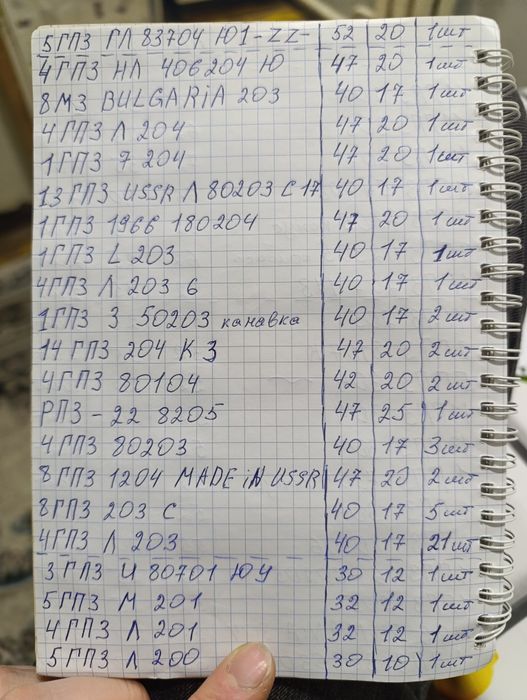 5ГПЗ ГЛ 83704 Ю1-ZZ- 52 20 1шт
4ГПЗ НЛ 406204 Ю 47 20 1шт
8МЗ BULGARiA 203 40 17 1шт
4ГПЗ Л 204 47 20 1шт
1ГПЗ 7 204 47 20 1шт
13ГПЗ USSR Л 80203 С17 40 17 1шт
1ГПЗ 1966 180204 47 20 1шт
1ГПЗ L 203 40 17 1шт
4ГПЗ Л 203 6 40 17 1шт
1ГПЗ 3 50203 канавка 40 17 2шт
14ГПЗ 204 К3 47 20 2шт
4ГПЗ 80104 42 20 2шт
РПЗ-22 8205 47 25 1шт
4ГПЗ 80203 40 17 3шт
8ГПЗ 1204 MADE iN USSR 47 20 2шт
8ГПЗ 203 С 40 17 5шт
4ГПЗ Л 203 40 17 21шт
3ГПЗ И 80701 ЮУ 30 12 1шт
5ГПЗ М 201 32 12 1шт
4ГПЗ Л 201 32 12 1шт
5ГПЗ Л 200 30 10 1шт